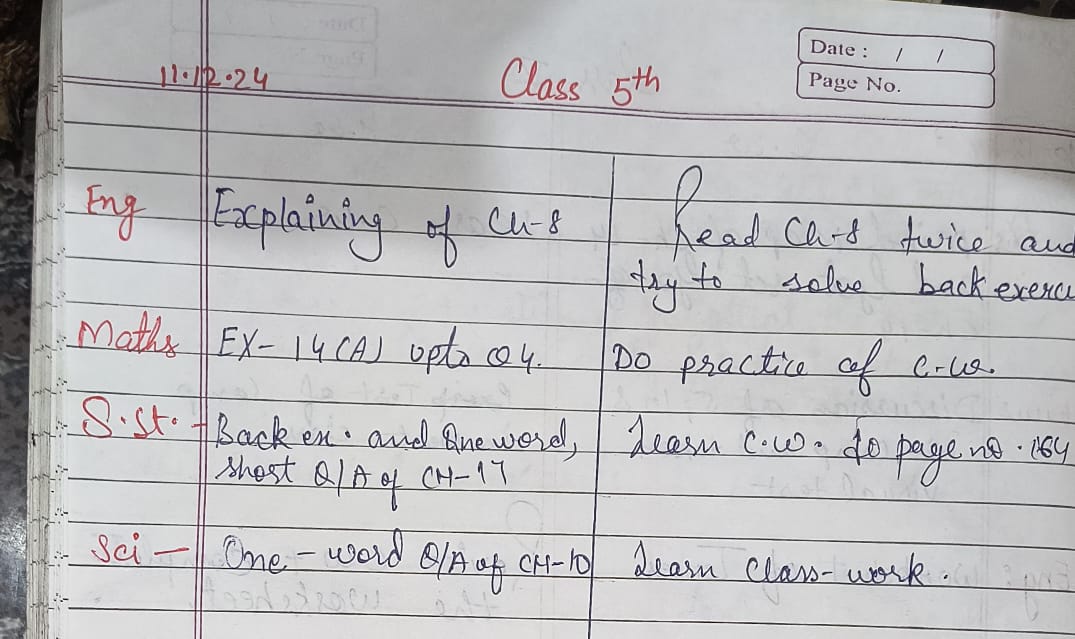 Date : / /
Page No.
11.12.24 Class 5th
Eng Explaining of Ch-8 Read Ch-8 twice and
try to solve back exerc
Maths EX-14(A) upto Q4. Do practice of c.w.
S.St. - Back ex. and One word, Learn C.w. do page no. 164
short Q/A of CH-17
Sci - One-word Q/A of CH-10 Learn Class-work.